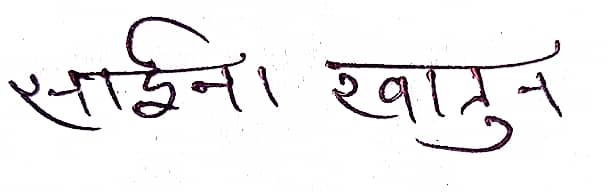 साईना खातुन